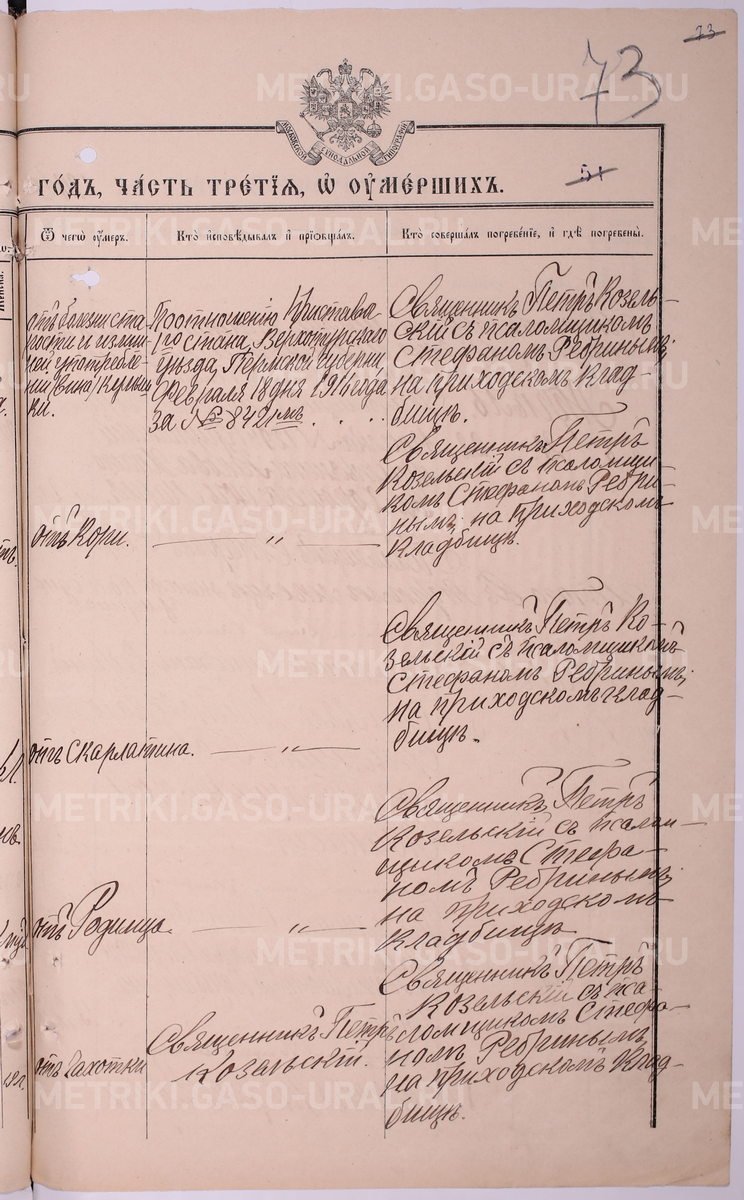 73
73
МОСКОВСКОЙ СѴНОДАЛЬНОЙ ТИПОГРАФIИ
51
ГО́ДЪ, ЧА́СТЬ ТРЕ́ТIѦ, Ѡ ОУМЕ́РШИХЪ.
Ѿ чегѡ оу́меръ.
Кто̀ и҆сповѣ́дывалъ и҆ прїѡбща́лъ.
Кто̀ соверша́лъ погребе́нїе, и҆ гдѣ̀ погребены̀.
отъ болезни ста-
рости и излиш-
ней употребле-
нии /вина/ кумыш-
ки.
По отношенію Пристава
1го стана, Верхотурскаго
уѣзда, Пермской губерніи,
Февраля 18 дня 1916 года
за № 8421мъ . . . .
Священникъ Петръ Козель-
скій съ псаломщикомъ
Стефаномъ Ребринымъ;
на приходскомъ клад-
бищѣ.
отъ Кори.
— „ —
Священникъ Петръ
Козельскій съ псаломщи-
комъ Стефаномъ Ребри-
нымъ; на приходскомъ
кладбищѣ.
отъ Скарлатина.
— „ —
Священникъ Петръ Ко-
зельскій съ псаломщикомъ
Стефаномъ Ребринымъ;
на приходскомъ клад-
бищѣ.
отъ Родимца.
— „ —
Священникъ Петръ
Козельскій съ псалом-
щикомъ Стефа-
номъ Ребринымъ;
на приходскомъ
кладбищѣ
отъ Чахотки
Священникъ Петръ
Козельскій.
Священникъ Петръ
Козельскій съ пса-
ломщикомъ Стефа-
номъ Ребринымъ,
на приходскомъ клад-
бищѣ.
METRIKI.GASO-URAL.RU